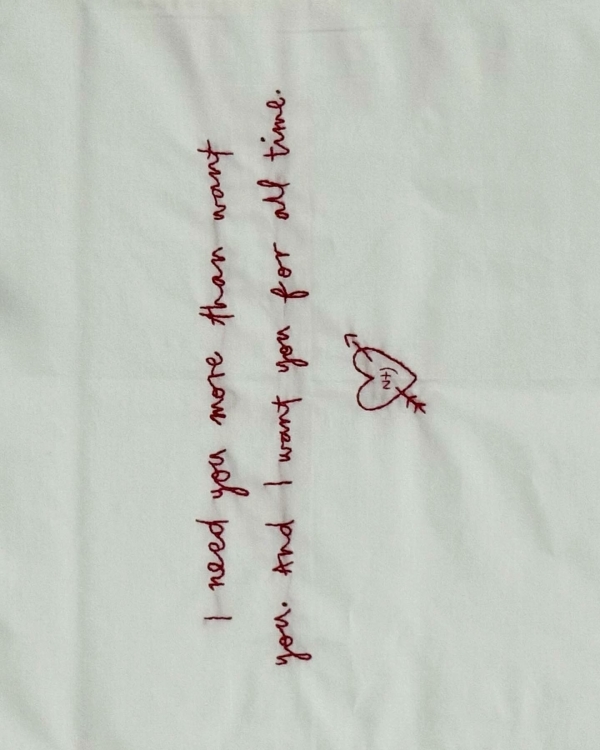 I need you more than want
you. And I want you for all time.